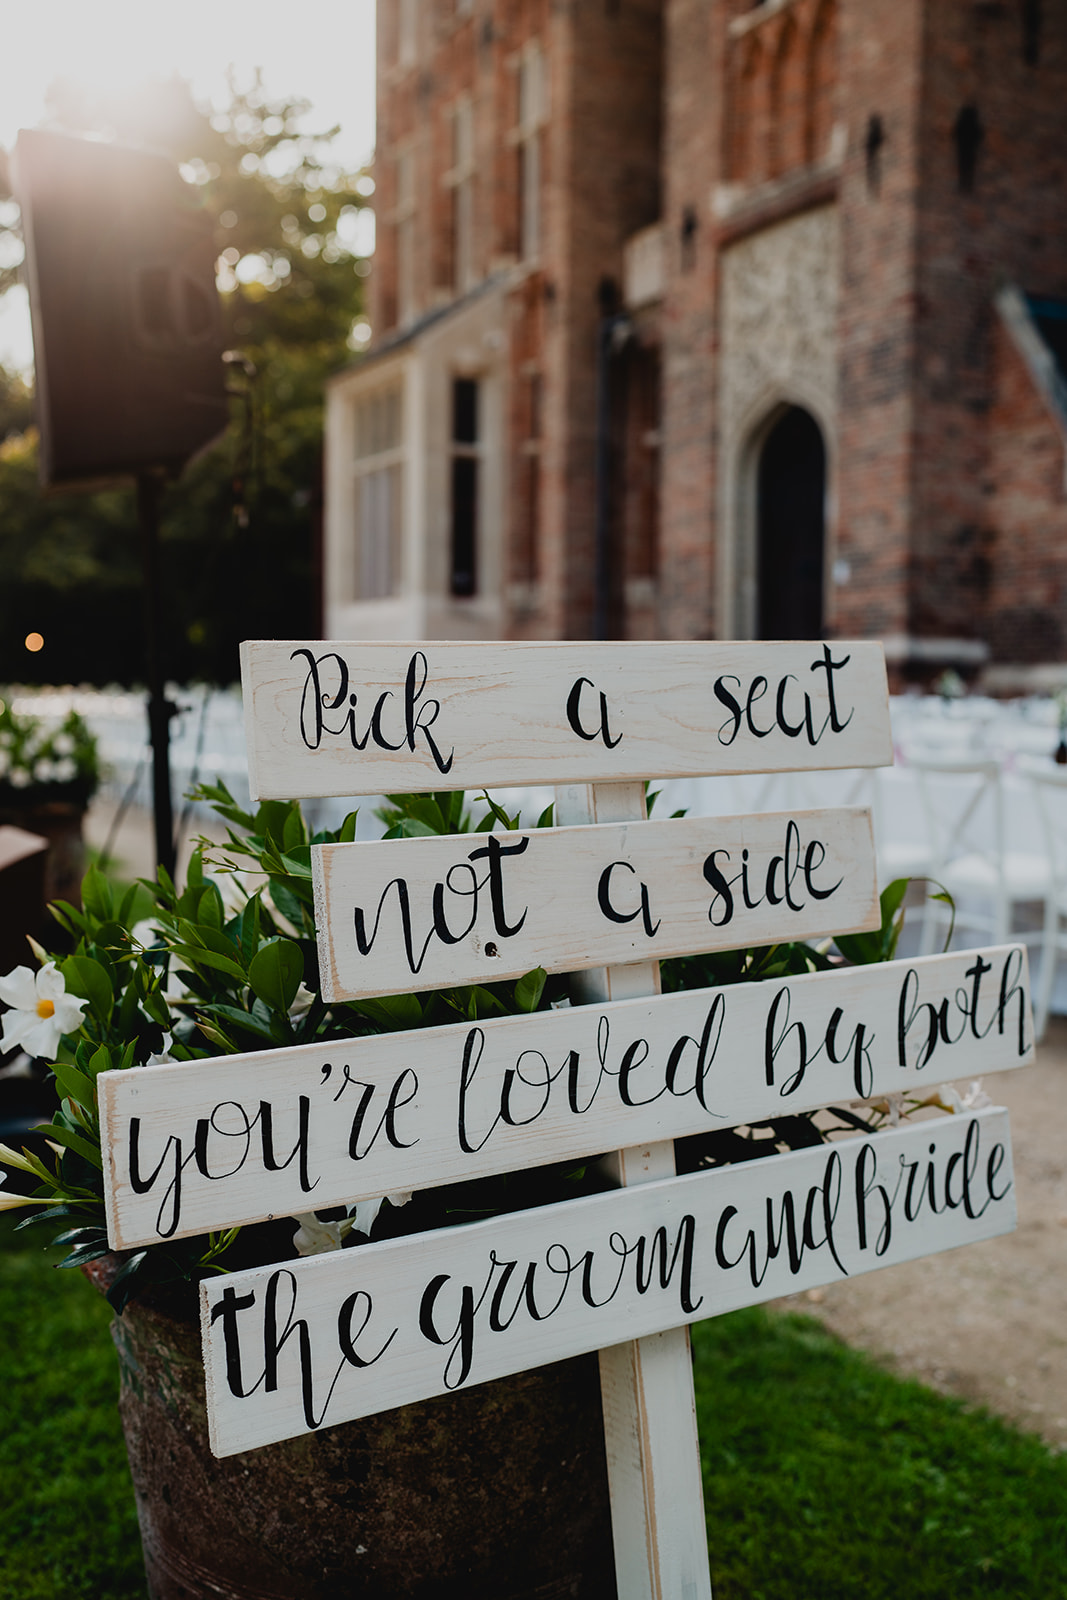 Pick a seat
not a side
you're loved by both
the groom and bride